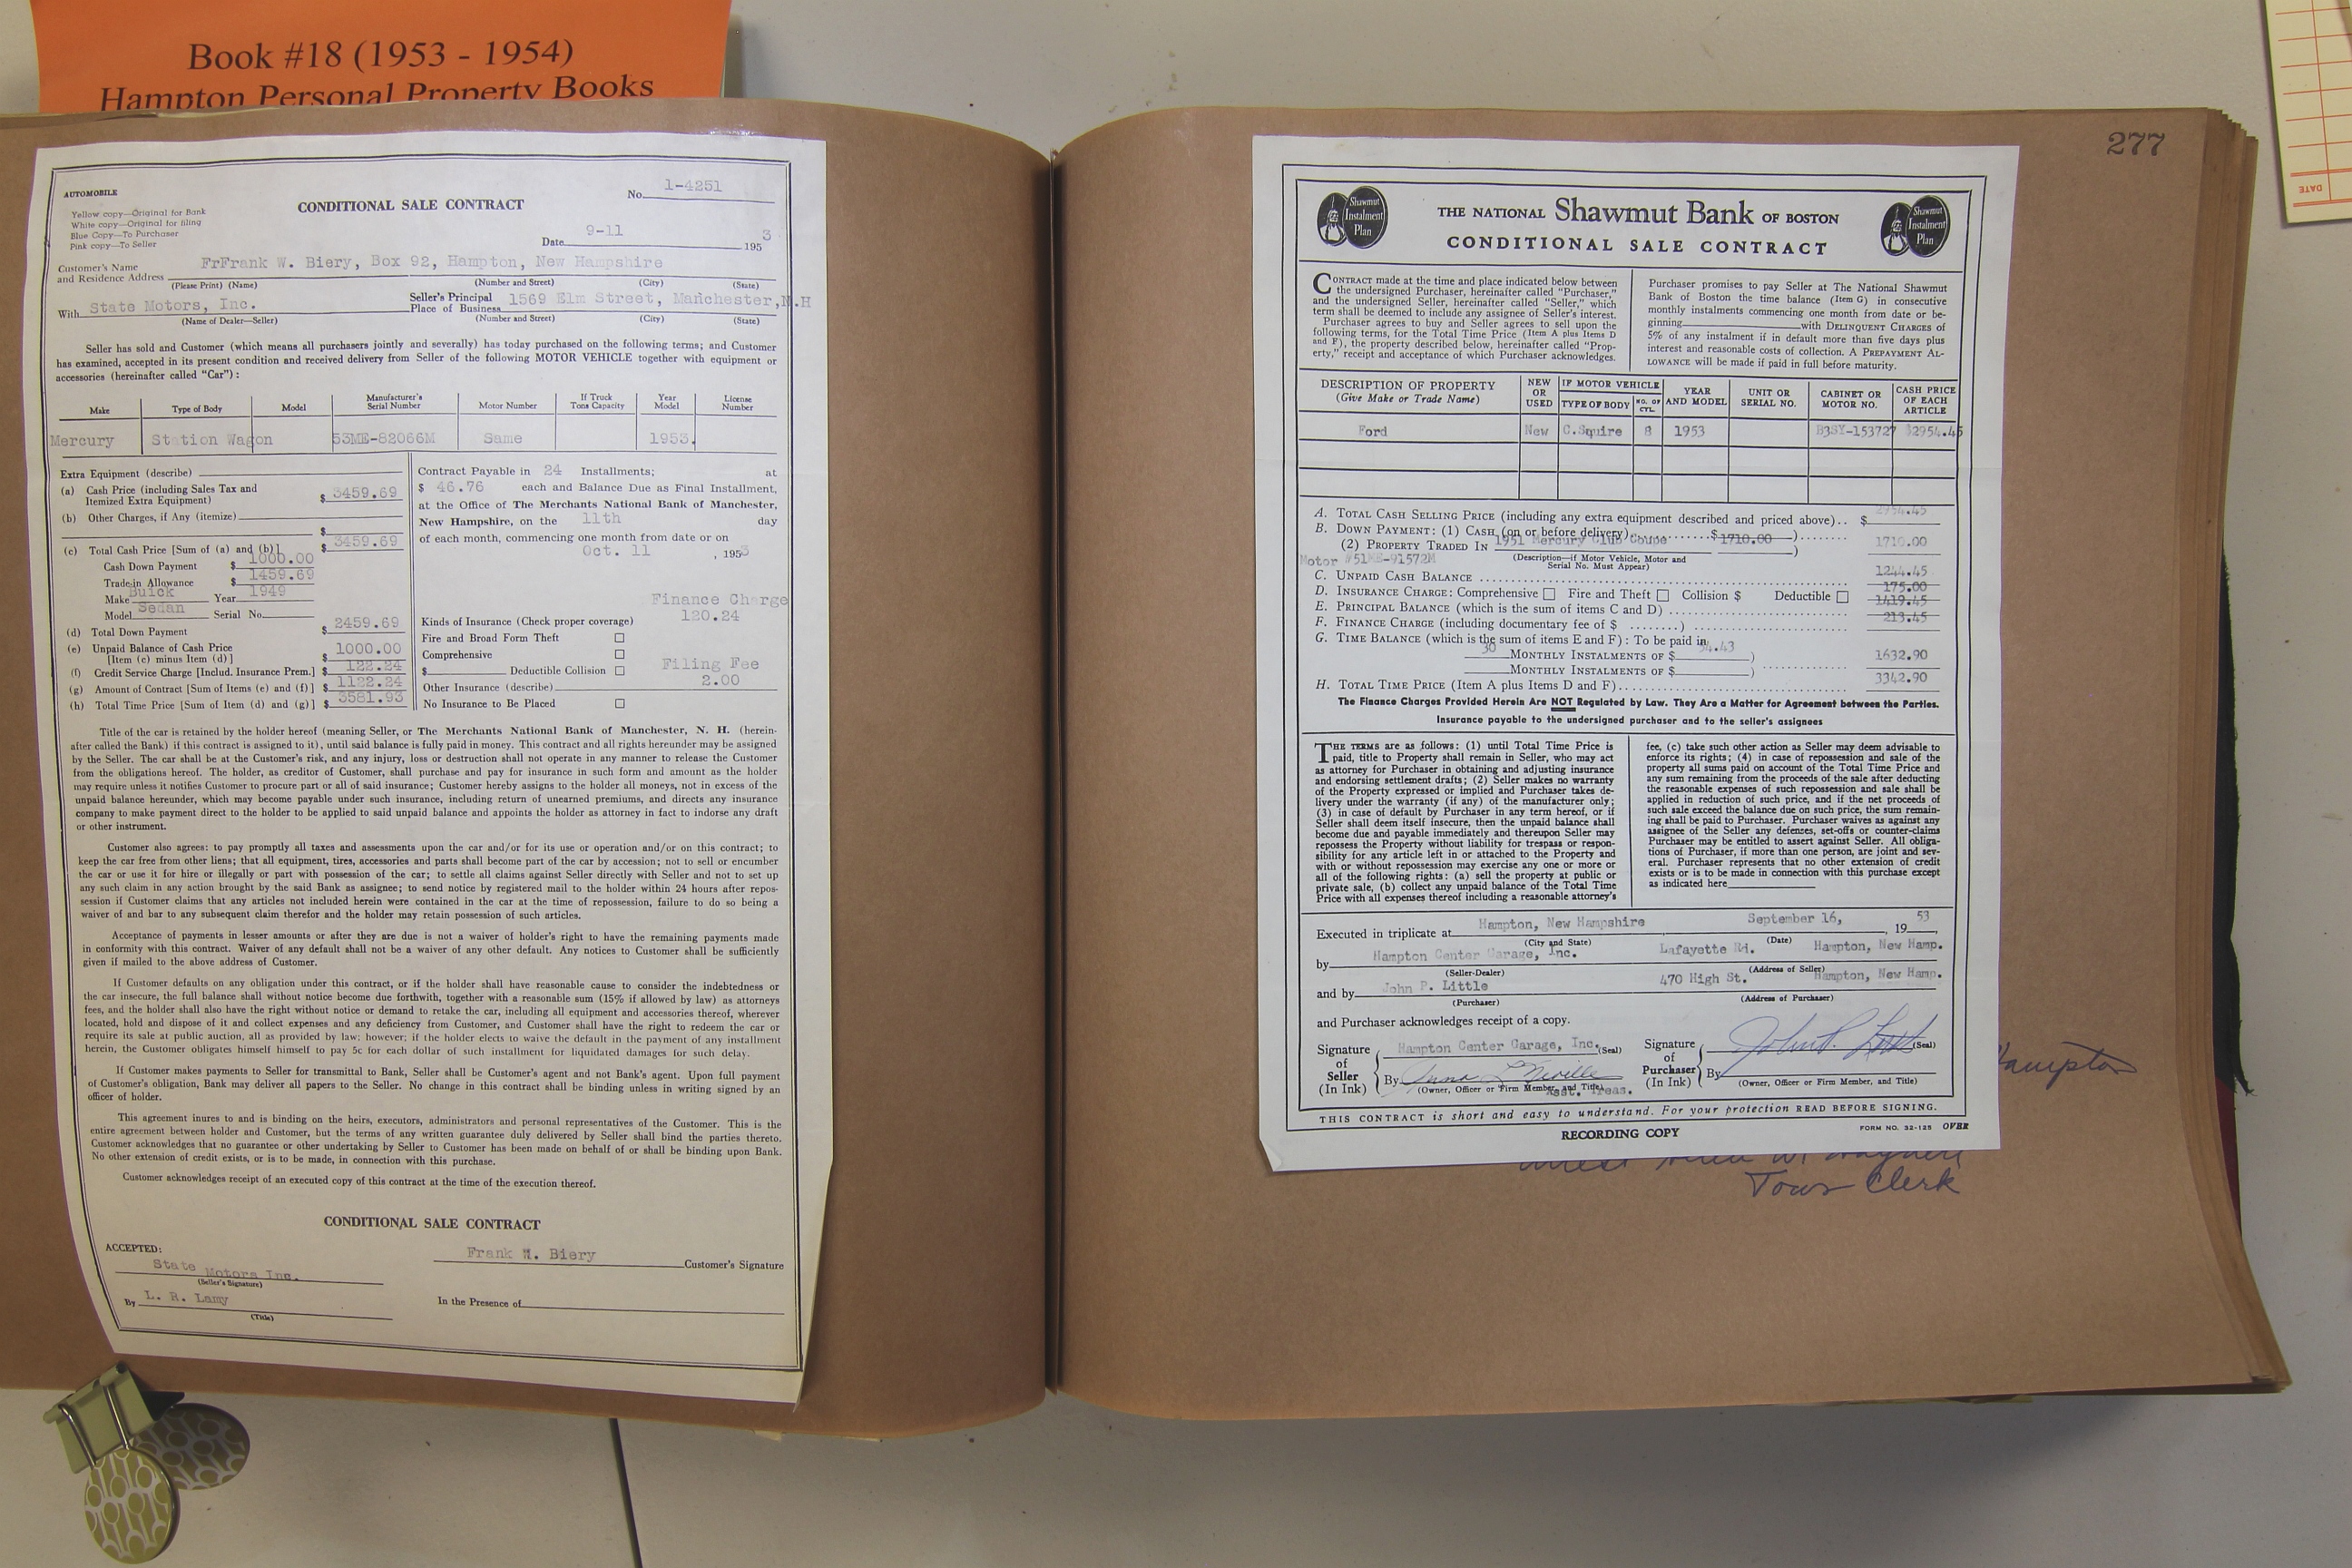 Book #18 (1953 - 1954)
Hampton Personal Property Books
AUTOMOBILE
Yellow copy—Original for Bank
White copy—Original for filing
Blue Copy—To Purchaser
Pink copy—To Seller
CONDITIONAL SALE CONTRACT
No. 1-4251
Date 9-11 1953
Customer's Name
and Residence Address FrFrank W. Biery, Box 92, Hampton, New Hampshire
(Please Print) (Name) (Number and Street) (City) (State)
With State Motors, Inc. Seller's Principal Place of Business 1569 Elm Street, Manchester, N.H
(Name of Dealer—Seller) (Number and Street) (City) (State)
Seller has sold and Customer (which means all purchasers jointly and severally) has today purchased on the following terms; and Customer
has examined, accepted in its present condition and received delivery from Seller of the following MOTOR VEHICLE together with equipment or
accessories (hereinafter called "Car") :
Make Type of Body Model Manufacturer's Serial Number Motor Number If Truck Tons Capacity Year Model License Number
Mercury Station Wagon 53ME-82066M Same 1953.
Extra Equipment (describe)
(a) Cash Price (including Sales Tax and
Itemized Extra Equipment) $ 3459.69
(b) Other Charges, if Any (itemize)
$
(c) Total Cash Price [Sum of (a) and (b)] $ 3459.69
Cash Down Payment $ 1000.00
Trade-in Allowance $ 1459.69
Make Buick Year 1949
Model Sedan Serial No.
(d) Total Down Payment $ 2459.69
(e) Unpaid Balance of Cash Price
[Item (c) minus Item (d)] $ 1000.00
(f) Credit Service Charge [Includ. Insurance Prem.] $ 122.24
(g) Amount of Contract [Sum of Items (e) and (f)] $ 1122.24
(h) Total Time Price [Sum of Item (d) and (g)] $ 3581.93
Contract Payable in 24 Installments; at
$ 46.76 each and Balance Due as Final Installment,
at the Office of The Merchants National Bank of Manchester,
New Hampshire, on the 11th day
of each month, commencing one month from date or on
Oct. 11 , 1953
Finance Charge
120.24
Kinds of Insurance (Check proper coverage)
Fire and Broad Form Theft
Comprehensive
$ Deductible Collision
Filing Fee
2.00
Other Insurance (describe)
No Insurance to Be Placed
Title of the car is retained by the holder hereof (meaning Seller, or The Merchants National Bank of Manchester, N. H. (herein-
after called the Bank) if this contract is assigned to it), until said balance is fully paid in money. This contract and all rights hereunder may be assigned
by the Seller. The car shall be at the Customer's risk, and any injury, loss or destruction shall not operate in any manner to release the Customer
from the obligations hereof. The holder, as creditor of Customer, shall purchase and pay for insurance in such form and amount as the holder
may require unless it notifies Customer to procure part or all of said insurance; Customer hereby assigns to the holder all moneys, not in excess of the
unpaid balance hereunder, which may become payable under such insurance, including return of unearned premiums, and directs any insurance
company to make payment direct to the holder to be applied to said unpaid balance and appoints the holder as attorney in fact to indorse any draft
or other instrument.
Customer also agrees: to pay promptly all taxes and assessments upon the car and/or for its use or operation and/or on this contract; to
keep the car free from other liens; that all equipment, tires, accessories and parts shall become part of the car by accession; not to sell or encumber
the car or use it for hire or illegally or part with possession of the car; to settle all claims against Seller directly with Seller and not to set up
any such claim in any action brought by the said Bank as assignee; to send notice by registered mail to the holder within 24 hours after repos-
session if Customer claims that any articles not included herein were contained in the car at the time of repossession, failure to do so being a
waiver of and bar to any subsequent claim therefor and the holder may retain possession of such articles.
Acceptance of payments in lesser amounts or after they are due is not a waiver of holder's right to have the remaining payments made
in conformity with this contract. Waiver of any default shall not be a waiver of any other default. Any notices to Customer shall be sufficiently
given if mailed to the above address of Customer.
If Customer defaults on any obligation under this contract, or if the holder shall have reasonable cause to consider the indebtedness or
the car insecure, the full balance shall without notice become due forthwith, together with a reasonable sum (15% if allowed by law) as attorneys
fees, and the holder shall also have the right without notice or demand to retake the car, including all equipment and accessories thereof, wherever
located, hold and dispose of it and collect expenses and any deficiency from Customer, and Customer shall have the right to redeem the car or
require its sale at public auction, all as provided by law; however; if the holder elects to waive the default in the payment of any installment
herein, the Customer obligates himself himself to pay 5c for each dollar of such installment for liquidated damages for such delay.
If Customer makes payments to Seller for transmittal to Bank, Seller shall be Customer's agent and not Bank's agent. Upon full payment
of Customer's obligation, Bank may deliver all papers to the Seller. No change in this contract shall be binding unless in writing signed by an
officer of holder.
This agreement inures to and is binding on the heirs, executors, administrators and personal representatives of the Customer. This is the
entire agreement between holder and Customer, but the terms of any written guarantee duly delivered by Seller shall bind the parties thereto.
Customer acknowledges that no guarantee or other undertaking by Seller to Customer has been made on behalf of or shall be binding upon Bank.
No other extension of credit exists, or is to be made, in connection with this purchase.
Customer acknowledges receipt of an executed copy of this contract at the time of the execution thereof.
CONDITIONAL SALE CONTRACT
ACCEPTED:
State Motors Inc. Frank W. Biery Customer's Signature
(Seller's Signature)
By L. R. Lamy In the Presence of
(Title)
277
Shawmut Instalment Plan
THE NATIONAL Shawmut Bank OF BOSTON
CONDITIONAL SALE CONTRACT
Shawmut Instalment Plan
CONTRACT made at the time and place indicated below between
the undersigned Purchaser, hereinafter called "Purchaser,"
and the undersigned Seller, hereinafter called "Seller," which
term shall be deemed to include any assignee of Seller's interest.
Purchaser agrees to buy and Seller agrees to sell upon the
following terms, for the Total Time Price (Item A plus Items D
and F), the property described below, hereinafter called "Prop-
erty," receipt and acceptance of which Purchaser acknowledges.
Purchaser promises to pay Seller at The National Shawmut
Bank of Boston the time balance (Item G) in consecutive
monthly instalments commencing one month from date or be-
ginning with DELINQUENT CHARGES of
5% of any instalment if in default more than five days plus
interest and reasonable costs of collection. A PREPAYMENT AL-
LOWANCE will be made if paid in full before maturity.
DESCRIPTION OF PROPERTY (Give Make or Trade Name) NEW OR USED IF MOTOR VEHICLE TYPE OF BODY NO. OF CYL. YEAR AND MODEL UNIT OR SERIAL NO. CABINET OR MOTOR NO. CASH PRICE OF EACH ARTICLE
Ford New C.Squire 8 1953 B3SY-153727 $2954.45
A. TOTAL CASH SELLING PRICE (including any extra equipment described and priced above).. $ 2954.45
B. DOWN PAYMENT: (1) CASH (on or before delivery) $ )
(2) PROPERTY TRADED IN 1951 Mercury Club Coupe 1710.00 ) 1710.00
Motor #51ME-91572M (Description—if Motor Vehicle, Motor and
Serial No. Must Appear)
C. UNPAID CASH BALANCE 1244.45
D. INSURANCE CHARGE: Comprehensive Fire and Theft Collision $ Deductible 175.00
E. PRINCIPAL BALANCE (which is the sum of items C and D) 1419.45
F. FINANCE CHARGE (including documentary fee of $ ........) 213.45
G. TIME BALANCE (which is the sum of items E and F) : To be paid in
30 MONTHLY INSTALMENTS OF $ 54.43 )
MONTHLY INSTALMENTS OF $ ) 1632.90
H. TOTAL TIME PRICE (Item A plus Items D and F) 3342.90
The Finance Charges Provided Herein Are NOT Regulated by Law. They Are a Matter for Agreement between the Parties.
Insurance payable to the undersigned purchaser and to the seller's assignees
THE TERMS are as follows: (1) until Total Time Price is
paid, title to Property shall remain in Seller, who may act
as attorney for Purchaser in obtaining and adjusting insurance
and endorsing settlement drafts; (2) Seller makes no warranty
of the Property expressed or implied and Purchaser takes de-
livery under the warranty (if any) of the manufacturer only;
(3) in case of default by Purchaser in any term hereof, or if
Seller shall deem itself insecure, then the unpaid balance shall
become due and payable immediately and thereupon Seller may
repossess the Property without liability for trespass or respon-
sibility for any article left in or attached to the Property and
with or without repossession may exercise any one or more or
all of the following rights: (a) sell the property at public or
private sale, (b) collect any unpaid balance of the Total Time
Price with all expenses thereof including a reasonable attorney's
fee, (c) take such other action as Seller may deem advisable to
enforce its rights; (4) in case of repossession and sale of the
property all sums paid on account of the Total Time Price and
any sum remaining from the proceeds of the sale after deducting
the reasonable expenses of such repossession and sale shall be
applied in reduction of such price, and if the net proceeds of
such sale exceed the balance due on such price, the sum remain-
ing shall be paid to Purchaser. Purchaser waives as against any
assignee of the Seller any defenses, set-offs or counter-claims
Purchaser may be entitled to assert against Seller. All obliga-
tions of Purchaser, if more than one person, are joint and sev-
eral. Purchaser represents that no other extension of credit
exists or is to be made in connection with this purchase except
as indicated here
Executed in triplicate at Hampton, New Hampshire September 16, , 19 53,
(City and State) (Date)
by Hampton Center Garage, Inc. Lafayette Rd. Hampton, New Hamp.
(Seller-Dealer) (Address of Seller)
and by John P. Little 470 High St. Hampton, New Hamp.
(Purchaser) (Address of Purchaser)
and Purchaser acknowledges receipt of a copy.
Signature of Seller (In Ink) Hampton Center Garage, Inc. (Seal)
By Anna L Neville
(Owner, Officer or Firm Member, and Title)
Asst. Treas.
Signature of Purchaser (In Ink) John P. Little (Seal)
By
(Owner, Officer or Firm Member, and Title)
THIS CONTRACT is short and easy to understand. For your protection READ BEFORE SIGNING.
RECORDING COPY
FORM NO. 32-125 OVER
Hampton
Town Clerk
DATE